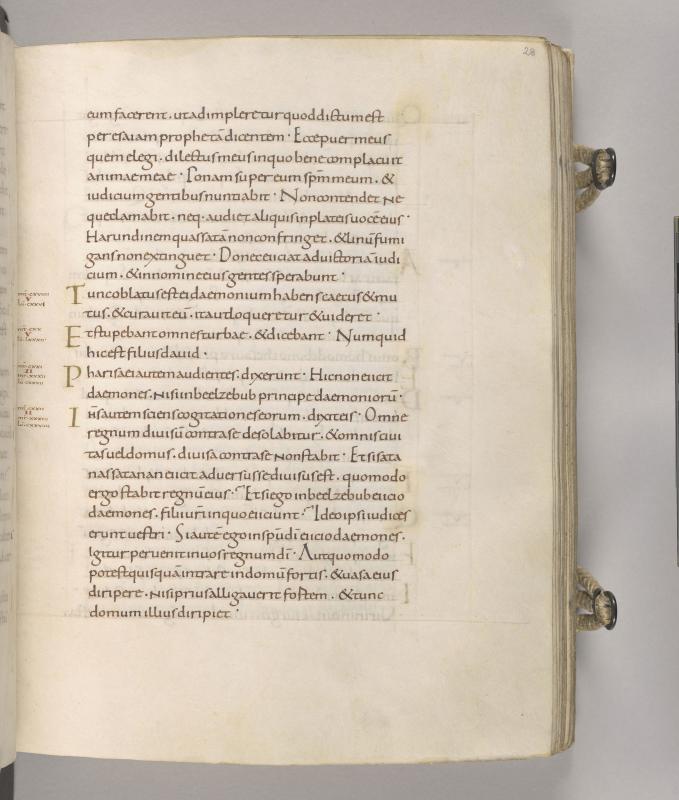 28
eum facerent. ut adimpleretur quod dictum est
per esaiam prophetā dicentem· Ecce puer meus
quem elegi. dilectus meus in quo bene complacuit
animae meae· Ponam super eum sp̄m meum. &
iudicium gentibus nuntiabit· Non contendet ne
que clamabit. neq· audiet aliquis in plateis uocē eius·
Harundinem quassatā non confringet. & linū fumi
gans non extinguet· Donec eiciat ad uictoriā iudi
cium. & in nomine eius gentes sperabunt·
Tunc oblatus est ei daemonium habens caecus & mu
tus. & curauit eū. ita ut loqueretur & uideret·
Et stupebant omnes turbae. & dicebant· Numquid
hic est filius dauid·
Pharisaei autem audientes. dixerunt· Hic non eicit
daemones. nisi in beelzebub principe daemoniorū·
Ih̄s autem sciens cogitationes eorum. dixit eis· Omne
regnum diuisū contra se desolabitur. & omnis ciui
tas uel domus. diuisa contra se non stabit· Et si sata
nas satanan eicit aduersus se diuisus est. quomodo
ergo stabit regnū eius· Et si ego in beelzebub eicio
daemones. filii uri in quo eiciunt· Ideo ipsi iudices
erunt uestri· Si autē ego in spū dī eicio daemones.
Igitur peruenit in uos regnum dī· Aut quomodo
potest quisquā intrare in domū fortis. & uasa eius
diripere. nisi prius alligauerit fortem. & tunc
domum illius diripiet·